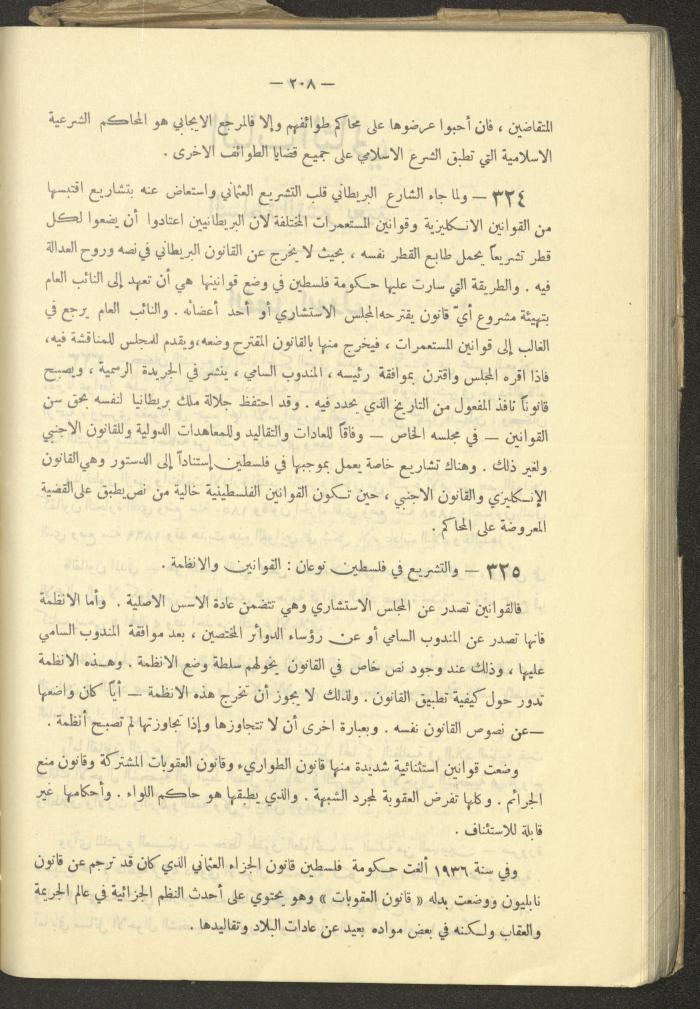 — ٢٠٨ —
المتقاضين ، فان أحبوا عرضوها على محاكم طوائفهم وإلا فالمرجع الايجابي هو المحاكم الشرعية
الاسلامية التي تطبق الشرع الاسلامي على جميع قضايا الطوائف الاخرى .
٣٢٤ — ولما جاء الشارع البريطاني قلب التشريع العثماني واستعاض عنه بتشاريع اقتبسها
من القوانين الانكليزية وقوانين المستعمرات المختلفة لان البريطانيين اعتادوا أن يضعوا لكل
قطر تشريعاً يحمل طابع القطر نفسه ، بحيث لا يخرج عن القانون البريطاني في نصه وروح العدالة
فيه . والطريقة التي سارت عليها حكومة فلسطين في وضع قوانينها هي أن تعهد إلى النائب العام
بتهيئة مشروع أيّ قانون يقترحه المجلس الاستشاري أو أحد أعضائه . والنائب العام يرجع في
الغالب إلى قوانين المستعمرات ، فيخرج منها بالقانون المقترح وضعه، ويقدم للمجلس للمناقشة فيه،
فاذا اقره المجلس واقترن بموافقة رئيسه ، المندوب السامي ، ينشر في الجريدة الرسمية ، ويصبح
قانوناً نافذ المفعول من التاريخ الذي يحدد فيه . وقد احتفظ جلالة ملك بريطانيا لنفسه بحق سن
القوانين — في مجلسه الخاص — وفاقاً للعادات والتقاليد وللمعاهدات الدولية وللقانون الاجنبي
ولغير ذلك . وهناك تشاريع خاصة يعمل بموجبها في فلسطين إستناداً إلى الدستور وهي القانون
الإنكليزي والقانون الاجنبي ، حين تكون القوانين الفلسطينية خالية من نص يطبق على القضية
المعروضة على المحاكم .
٣٢٥ — والتشريع في فلسطين نوعان : القوانين والانظمة .
فالقوانين تصدر عن المجلس الاستشاري وهي تتضمن عادة الاسس الاصلية . وأما الانظمة
فانها تصدر عن المندوب السامي أو عن رؤساء الدوائر المختصين ، بعد موافقة المندوب السامي
عليها ، وذلك عند وجود نص خاص في القانون يخولهم سلطة وضع الانظمة . وهذه الانظمة
تدور حول كيفية تطبيق القانون . ولذلك لا يجوز أن تخرج هذه الانظمة — أياً كان واضعها
—عن نصوص القانون نفسه . وبعبارة اخرى أن لا تتجاوزها وإذا تجاوزتها لم تصبح أنظمة .
وضعت قوانين استثنائية شديدة منها قانون الطواريء وقانون العقوبات المشتركة وقانون منع
الجرائم . وكلها تفرض العقوبة لمجرد الشبهة . والذي يطبقها هو حاكم اللواء . وأحكامها غير
قابلة للاستئناف .
وفي سنة ١٩٣٦ ألغت حكومة فلسطين قانون الجزاء العثماني الذي كان قد ترجم عن قانون
نابليون ووضعت بدله « قانون العقوبات » وهو يحتوي على أحدث النظم الجزائية في عالم الجريمة
والعقاب ولكنه في بعض مواده بعيد عن عادات البلاد وتقاليدها .